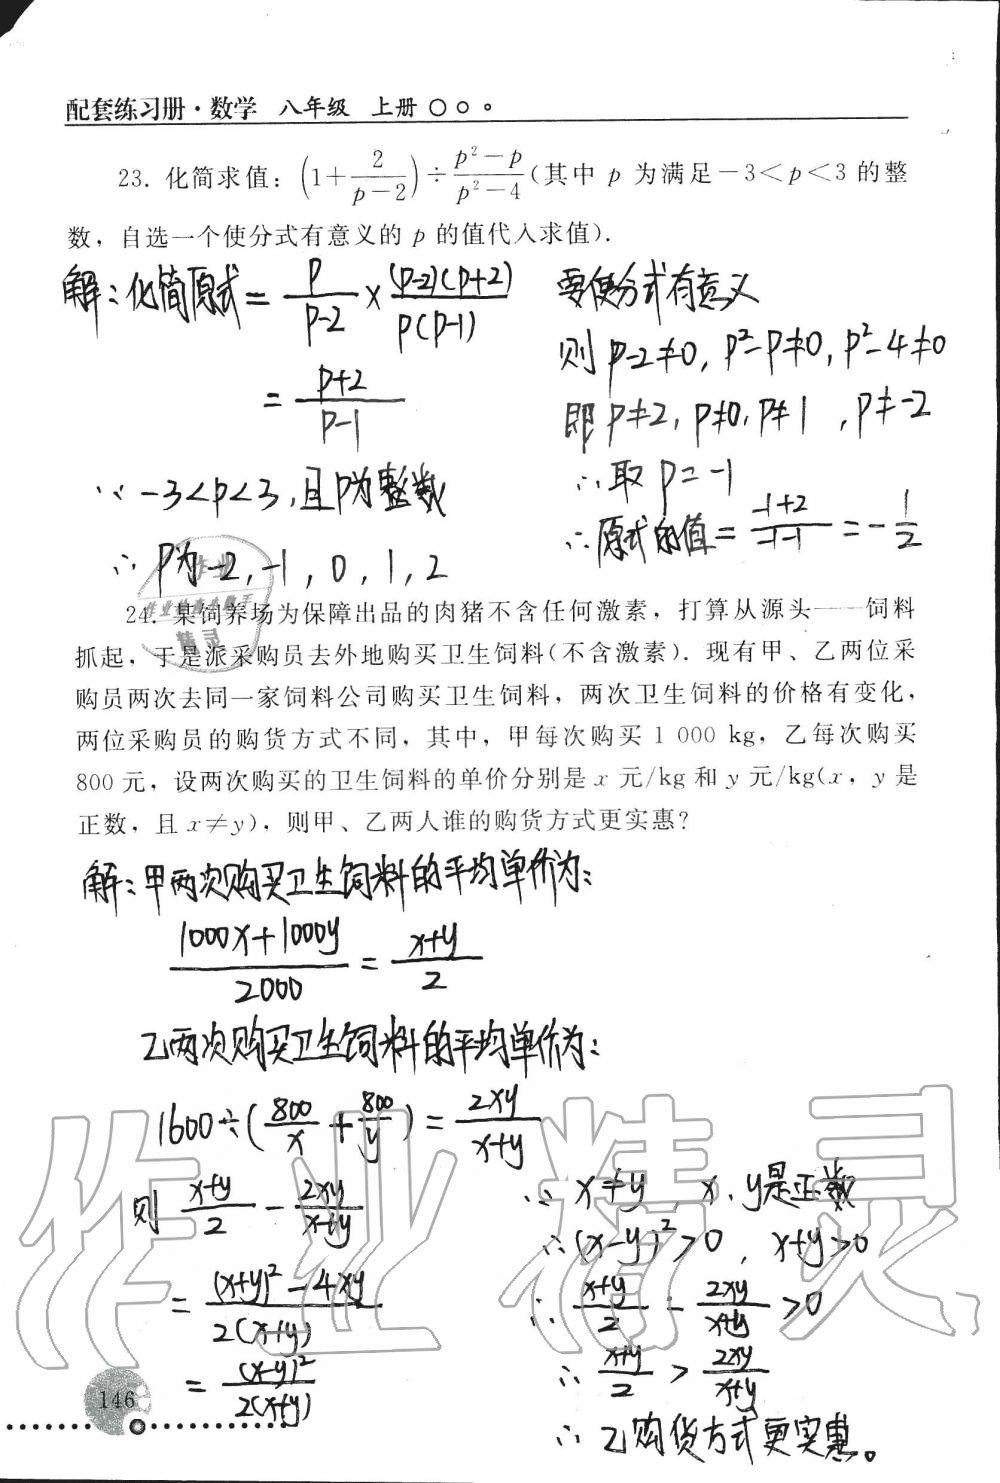 配套练习册·数学 八年级 上册
23. 化简求值：(1+2/(p-2))÷(p²-p)/(p²-4)(其中 p 为满足-3<p<3 的整
数，自选一个使分式有意义的 p 的值代入求值).
解:化简原式= p/(p-2) × (p-2)(p+2)/p(p-1)
= (p+2)/(p-1)
∵ -3<p<3,且p为整数
∴ p为-2,-1,0,1,2
要使分式有意义
则 p-2≠0, p²-p≠0, p²-4≠0
即 p≠2, p≠0, p≠1, p≠-2
∴取 p=-1
∴原式的值= (-1+2)/(-1-1) = -1/2
24. 某饲养场为保障出品的肉猪不含任何激素，打算从源头——饲料
抓起，于是派采购员去外地购买卫生饲料(不含激素). 现有甲、乙两位采
购员两次去同一家饲料公司购买卫生饲料，两次卫生饲料的价格有变化，
两位采购员的购货方式不同，其中，甲每次购买 1 000 kg，乙每次购买
800 元，设两次购买的卫生饲料的单价分别是 x 元/kg 和 y 元/kg(x，y 是
正数，且 x≠y)，则甲、乙两人谁的购货方式更实惠?
解:甲两次购买卫生饲料的平均单价为:
(1000x+1000y)/2000 = (x+y)/2
乙两次购买卫生饲料的平均单价为:
1600÷(800/x + 800/y) = 2xy/(x+y)
则 (x+y)/2 - 2xy/(x+y)
= ((x+y)²-4xy)/2(x+y)
= (x-y)²/2(x+y)
∵ x≠y x,y是正数
∴(x-y)²>0, x+y>0
∴ (x+y)/2 - 2xy/(x+y) >0
∴ (x+y)/2 > 2xy/(x+y)
∴ 乙购货方式更实惠。
146
作业精灵